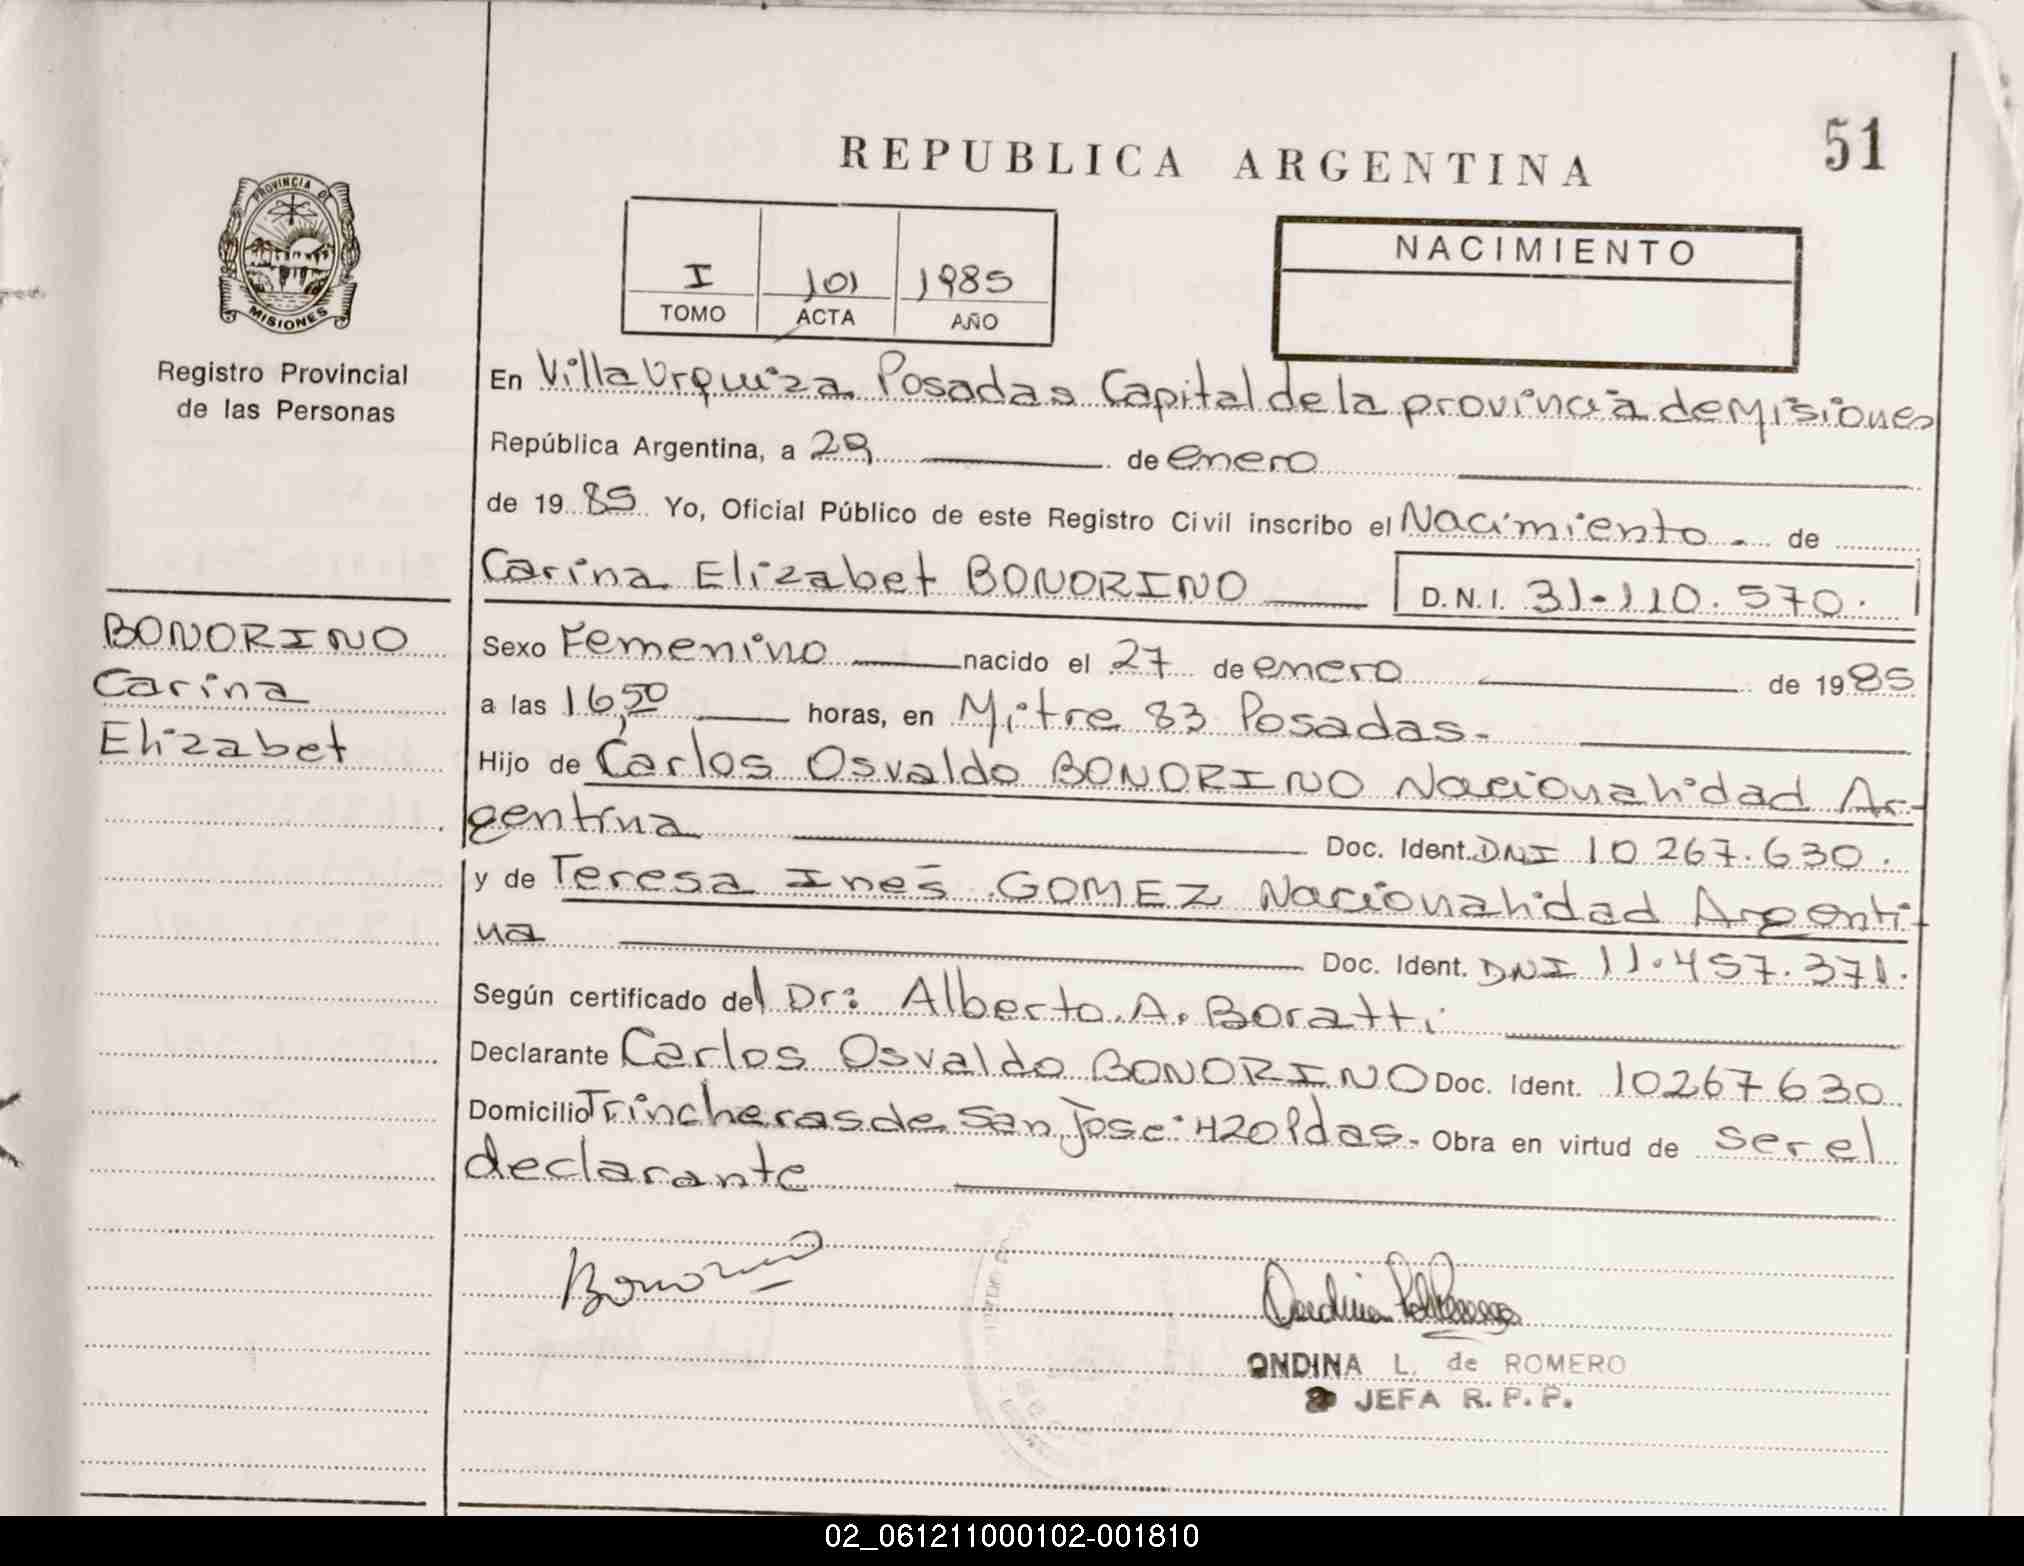 51
REPUBLICA ARGENTINA
PROVINCIA DE
MISIONES
Registro Provincial
de las Personas
I 101 1985
TOMO ACTA AÑO
NACIMIENTO
En Villa Urquiza Posadas Capital de la provincia de Misiones
República Argentina, a 29 de enero
de 1985 Yo, Oficial Público de este Registro Civil inscribo el Nacimiento - de
Carina Elizabet BONORINO D.N.I. 31-110.570.
BONORINO
Carina
Elizabet
Sexo Femenino nacido el 27 de enero de 1985
a las 16,50 horas, en Mitre 83 Posadas-
Hijo de Carlos Osvaldo BONORINO Nacionalidad Ar-
gentina Doc. Ident. DNI 10 267.630.
y de Teresa Inés GOMEZ Nacionalidad Argenti-
na Doc. Ident. DNI 11.457.371.
Según certificado del Dr: Alberto A. Boratti
Declarante Carlos Osvaldo BONORINO Doc. Ident. 10267630
Domicilio Trincheras de San José 420 Pdas- Obra en virtud de ser el
declarante
Bonorino
ONDINA L. de ROMERO
JEFA R.P.P.
02_061211000102-001810